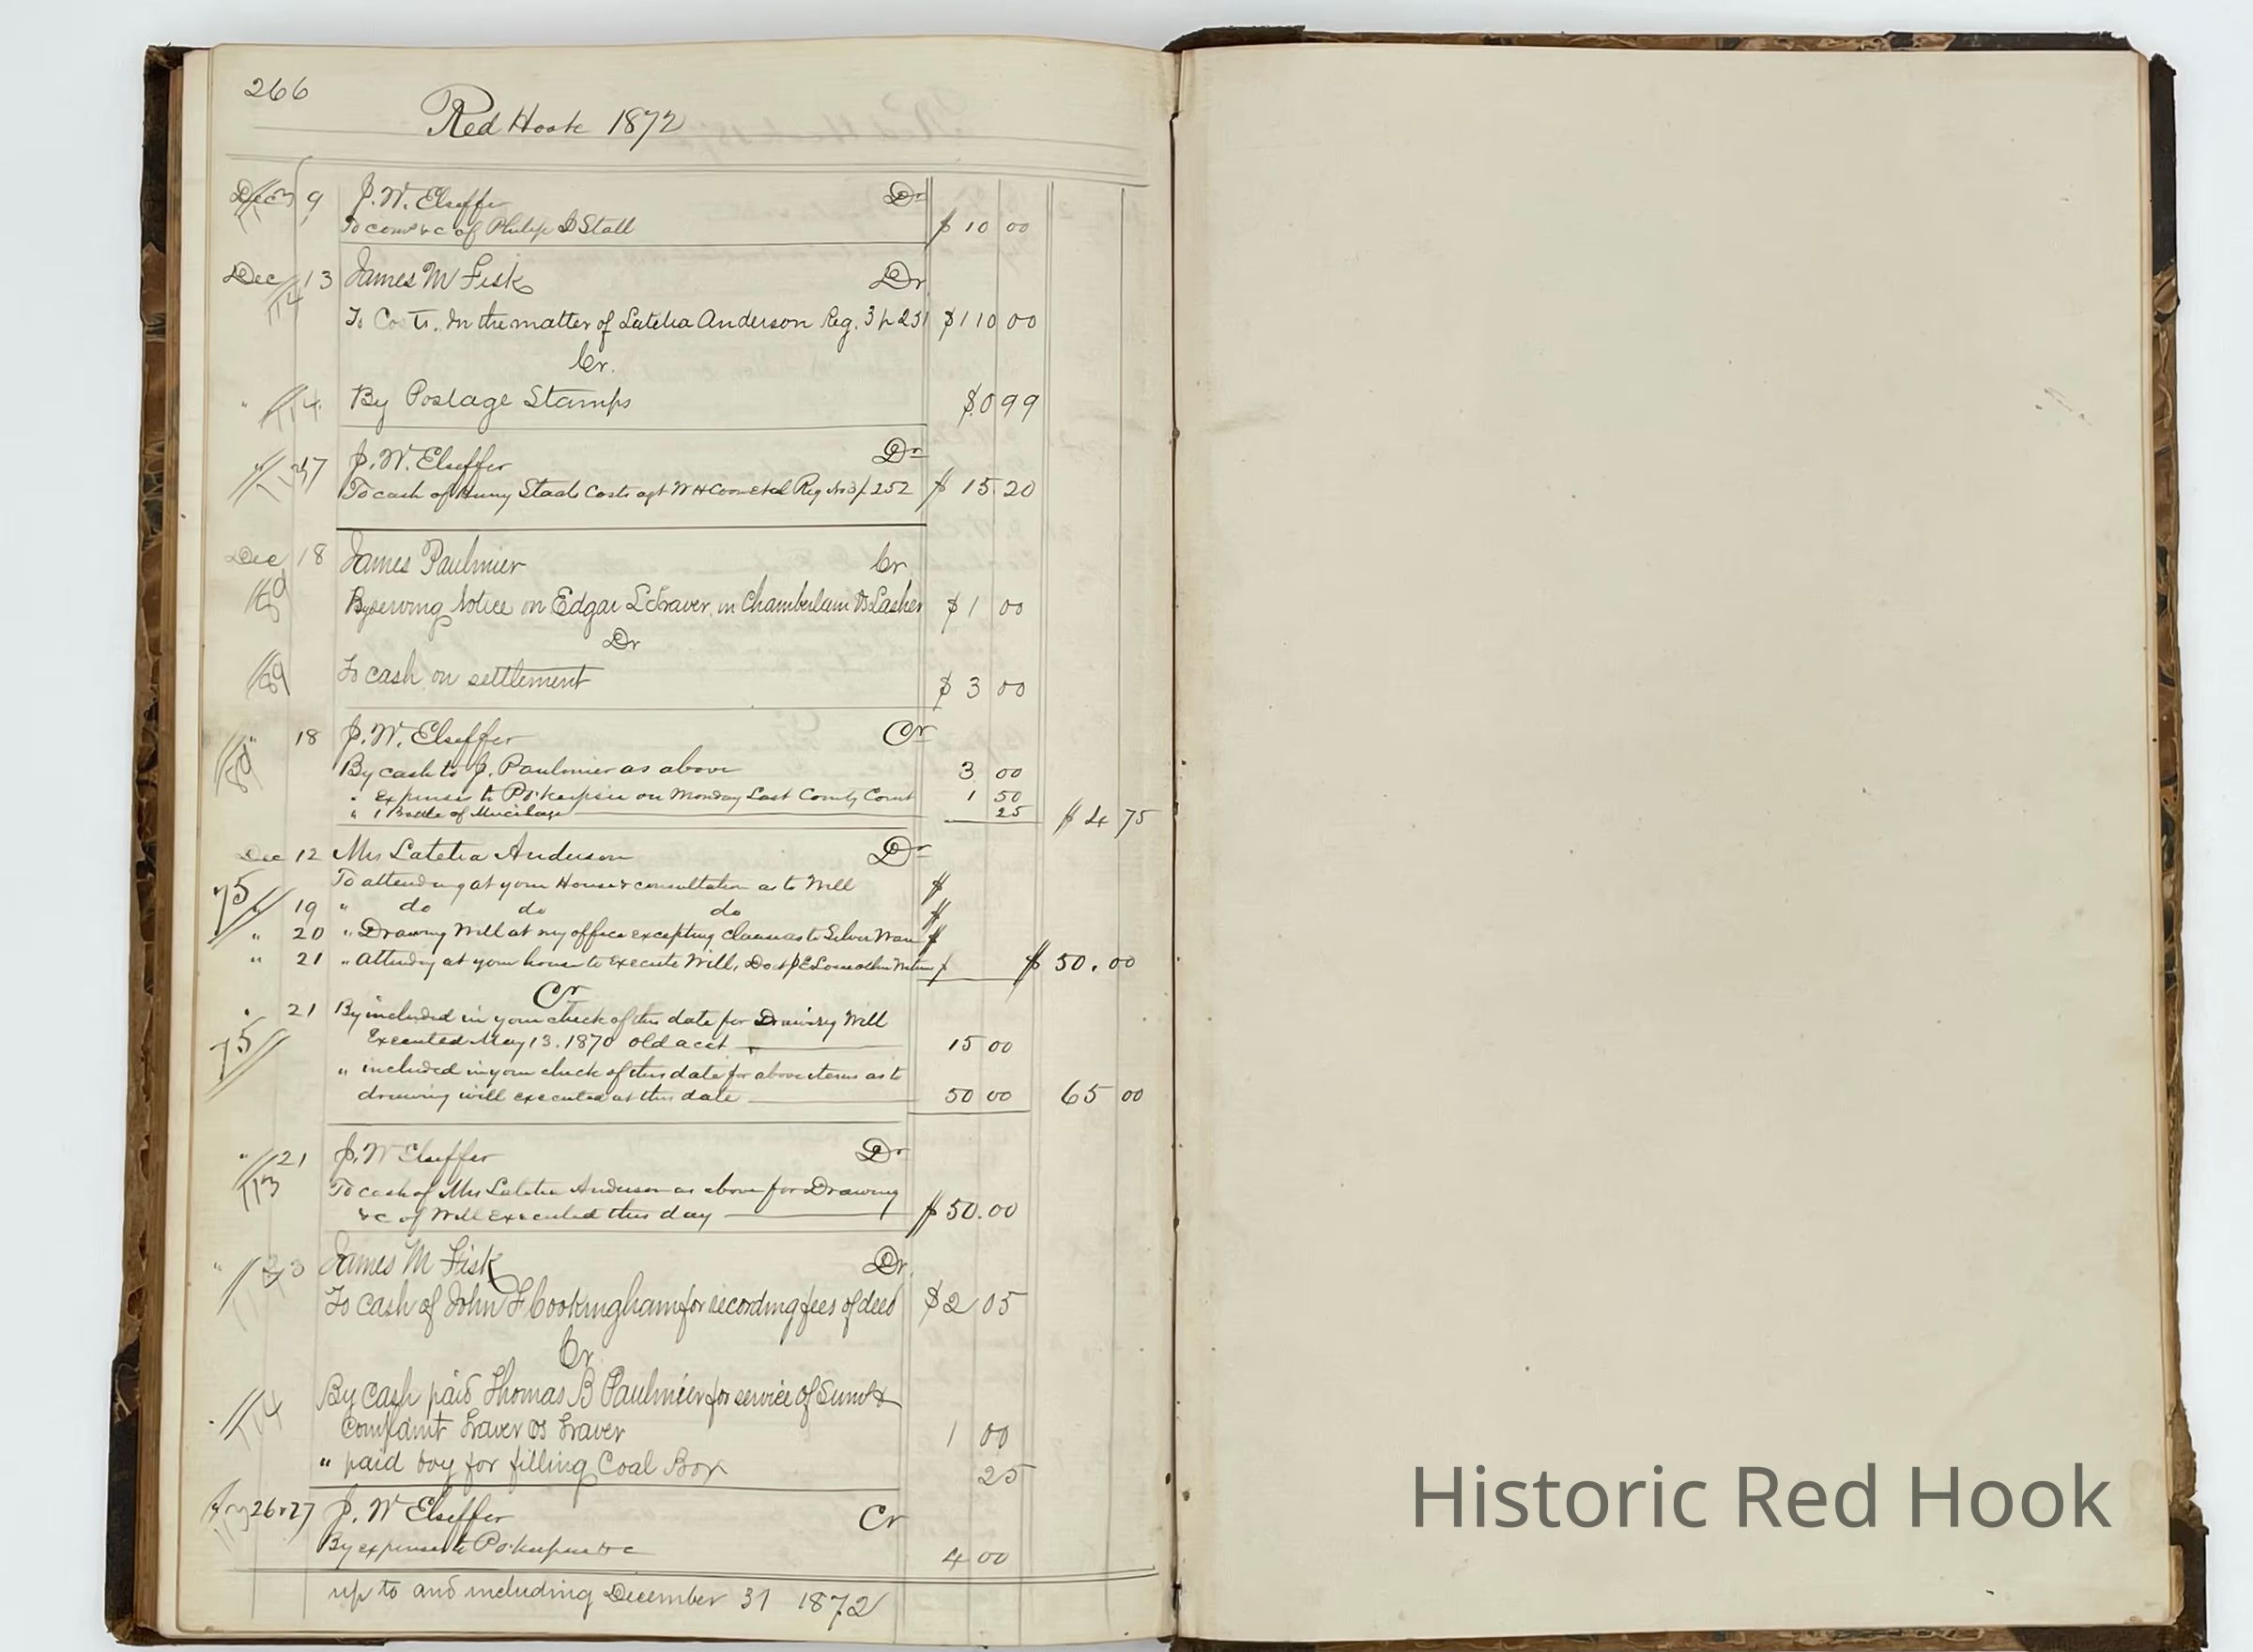 266
Red Hook 1872
Dec 9 J. W. Elseffer Dr
To com &c of Philip D Stall $ 10 00
Dec 13 James M Fisk Dr
To Costs. In the matter of Latetia Anderson Reg. 3 p 251 $110 00
Cr.
" 14 By Postage Stamps $.0 99
" 17 J. W. Elseffer Dr
To cash of Staats Costs agt W H Reg No 3 p 252 $ 15.20
Dec 18 James Paulmier Cr
By serving Notice on Edgar L Traver, in Chamberlain vs Lasher $ 1 00
Dr
To cash on settlement $ 3 00
" 18 J. W. Elseffer Cr
By cash to J. Paulmier as above 3 00
" Expenses to Po'keepsie on Monday Last County Court 1 50
" 1 Bottle of Mucilage 25 $ 4 75
Dec 12 Mrs Latetia Anderson Dr
To attending at your House & consultation as to Will $
75 " 19 " do do do $
" 20 " Drawing Will at my office excepting clause as to Silver Ware $
" 21 " Attending at your house to Execute Will, $ $ 50.00
Cr
" 21 By included in your check of this date for Drawing Will
75 Executed May 13. 1870 old acct 15 00
" included in your check of this date for above items as to
drawing will executed at this date 50 00 65 00
" 21 J. W Elseffer Dr
113 To cash of Mrs Latetia Anderson as above for Drawing
&c of Will Executed this day $ 50.00
" 23 James M Fisk Dr.
To cash of John F Cookingham for recording fees of deed $2 05
Cr
By Cash paid Thomas B Paulmier for service of Sums &
" 114 Complaint Traver vs Traver 1 00
" paid boy for filling Coal Box 25
" 26 & 27 J. W Elseffer Cr
By expenses to Po'keepsie &c 4 00
up to and including December 31 1872
Historic Red Hook